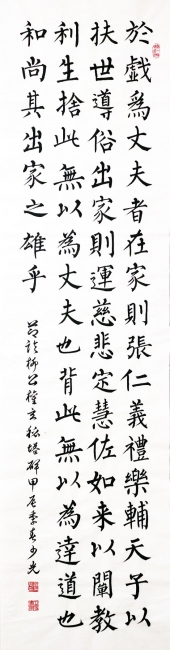 於戲為丈夫者在家則張仁義禮樂輔天子以
扶世導俗出家則運慈悲定慧佐如来以闡教
利生捨此無以為丈夫也背此無以為達道也
和尚其出家之雄乎
節臨柳公權玄秘塔碑甲辰季春少光